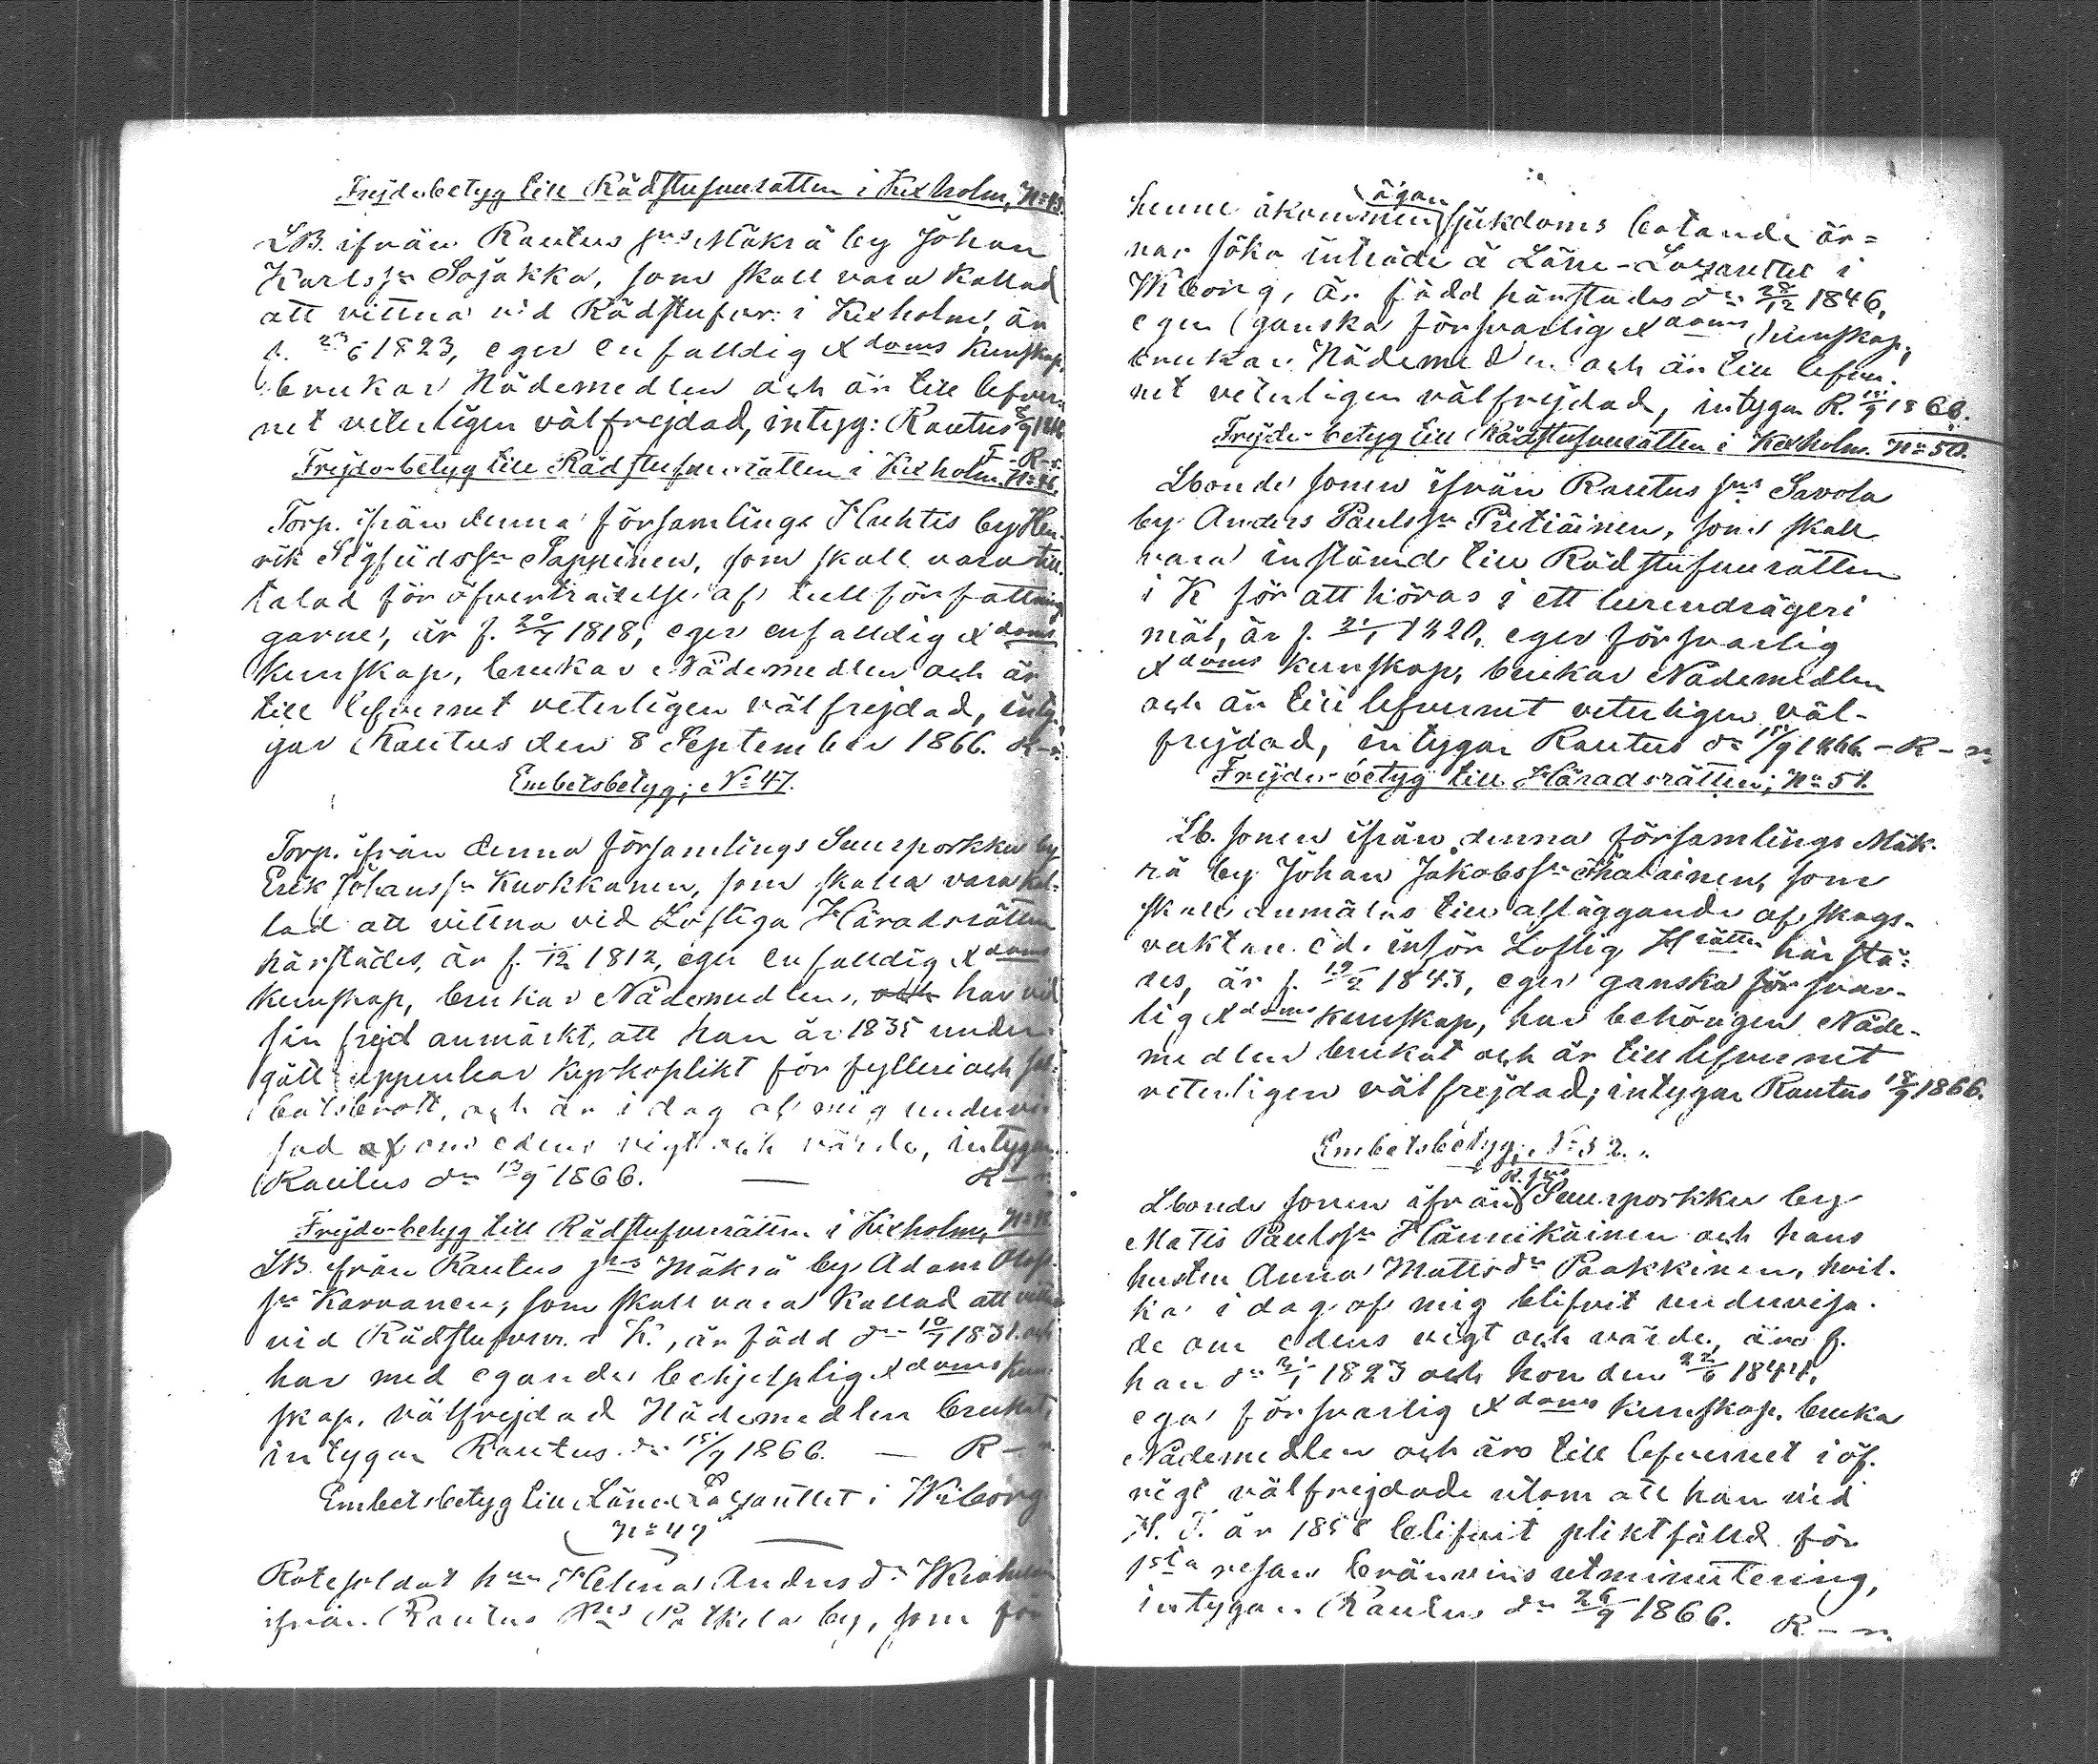 Frejdebetyg till Rådstufvurätten i Kexholm, No 45.
LB. ifrån Rautus sns Mäkrä by Johan
Karlssn Sojakka, som skall vara kallad
att vittna vid Rådstufvur: i Kexholm, är
f. 23/6 1823, eger enfalldig Xdoms kunskap,
brukar Nådemedlen och är till lefver-
net veterligen välfrejdad, intyg: Rautus 8/9 1866.
R-n.
Frejde-betyg till Rådstufvurätten i Kexholm. No 46.
Torp. ifrån denna församlings Huhtis by Hen-
rik Sigfridssn Pappinen, som skall vara till-
talad för öfverträdelse af tullförfattnin-
garne, är f. 20/7 1818, eger enfalldig Xdoms
kunskap, brukar Nådemedlen och är
till lefvernet veterligen välfrejdad, inty-
gar Rautus den 8 September 1866. R-n.
Embetsbetyg; No 47.
Torp. ifrån denna församlings Suurporkku by
Erik Johanssn Kuokkanen, som skall vara kal-
lad att vittna vid Lofliga Häradsrätten
härstädes, är f. /12 1812, eger enfalldig Xdoms
kunskap, brukar Nådemedlen, och har vid
sin frejd anmärkt, att han år 1835 under-
gått uppenbar kyrkoplikt för fylleri och sab-
batsbrott, och är i dag af mig undervi-
sad af om edens vigt och värde, intygar
Rautus dn 13/9 1866. — R-n.
Frejde-betyg till Rådstufvurätten i Kexholm,
LB. ifrån Rautus sns Mäkrä by Adam Olofs-
sn Karvanen, som skall vara kallad att vittna
vid Rådstufvur. i K., är född dn 10/7 1831. och
har med egande behjelplig Xdoms kun-
skap, välfrejdad Nådemedlen brukat,
intygar Rautus dn 15/9 1866. — R-n.
Embetsbetyg till Läne Lazarettet i Wiborg
No 49
Rotesoldat hun Helena Andersdr
ifrån Rautus sns Pätkilä by, som för
henne åkommen ögon sjukdoms botande är-
nar söka inträde å Läne-Lazarettet i
Wiborg, är född härstädes dn 28/12 1846,
eger ganska försvarlig Xdoms kunskap,
brukar Nådemedlen och är till lefver-
net veterligen välfrejdad, intygar R. 15/9 1866.
Frejde-betyg till Rådstufvurätten i Kexholm. No 50.
Lbonde sonen ifrån Rautus sns Savola
by Anders Paulssn Pietiäinen, som skall
vara instämd till Rådstufvurätten
i K för att höras i ett lurendrägeri
mål, är f. 21/1 1820, eger försvarlig
Xdoms kunskap, brukar Nådemedlen
och är till lefvernet veterligen väl-
frejdad, intygar Rautus dn 15/9 1866 - R-n
Frejde-betyg till Häradsrätten; No 51.
Lb. sonen ifrån denna församlings Mäk-
rä by Johan Jakobssn som
skall anmälas till afläggande af skogs-
vaktare ed. inför Loflig Hrätten härstä-
des, är f. 19/2 1843, eger ganska försvar-
lig Xdoms kunskap, har behörigen Nåde-
medlen brukat och är till lefvernet
veterligen välfrejdad; intygar Rautus 18/9 1866.
Embetsbetyg; No 52.
Lbonde sonen ifrån R. sns Suurporkku by
Matis Paulssn Hännikäinen och hans
hustru Anna Matisdr Paakkinen, hvil-
ka i dag af mig blifvit undervisa-
de om edens vigt och värde, äro f.
han dn 21/1 1823 och hon den 22/6 1844,
ega försvarlig Xdoms kunskap, bruka
Nådemedlen och äro till lefvernet i öf-
rigt välfrejdade utom att han vid
H. T. år 1858 blifvit pliktfälld för
1sta resan bränvins utminutering,
intygar Rautus dn 26/9 1866. R-n.